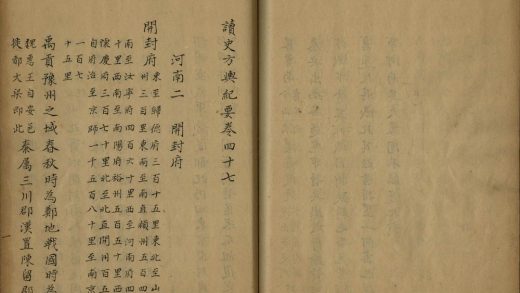 讀史方輿紀要卷四十七
河南二 開封府
開封府
東至歸德府三百十五里東北至山
州三百里東南至南直潁州五百四
南至汝寧府四百六十里西至河南府四
十里西南至南陽府裕州五百五十里西
懷慶府三百七十里北至北直開州百五
自府治至京師一千五百八十里至南京
一百七
十五里
禹貢豫州之域春秋時為鄭地戰國時為
魏惠王自安邑
徙都大梁即此
秦屬三川郡漢置陳留郡